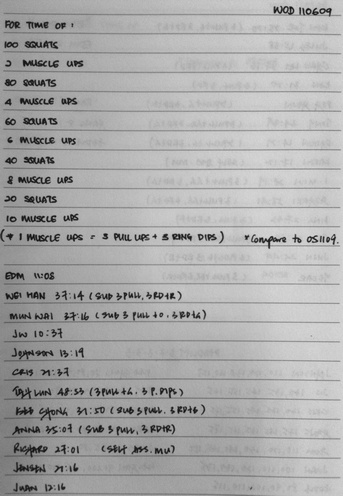 WOD 110609
FOR TIME OF:
100 SQUATS
2 MUSCLE UPS
80 SQUATS
4 MUSCLE UPS
60 SQUATS
6 MUSCLE UPS
40 SQUATS
8 MUSCLE UPS
20 SQUATS
10 MUSCLE UPS
(* 1 MUSCLE UPS = 3 PULL UPS + 3 RING DIPS) *Compare to 051109.
EDM 11:08
WEI HAN 37:14 (SUB 3 PULL, 3 RD+R)
MUN WAI 37:16 (SUB 3 PULL
JW 10:37
JOHNSON 13:19
CRIS 21:37
LUN 48:33 (3 PULL
CHONG 31:50 (SUB 3 PULL,
ANNA 35:07 (SUB 3 PULL, 3 RD+R)
RICHARD 27:01 (SELF ASS. MU)
JENSEN 21:16
JUAN 12:16